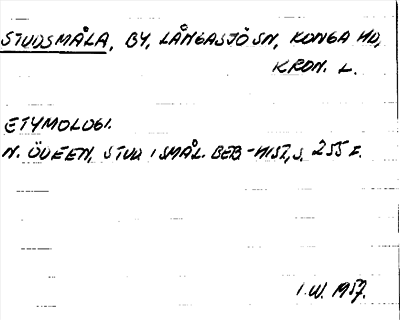 STUDSMÅLA, BY, LÅNGASJÖ SN, KONGA HD,
KRON. L.
ETYMOLOGI.
N. ÖDEEN, STUD I SMÅL. BEB-HIST, S. 255 F.
I.W. 1957.